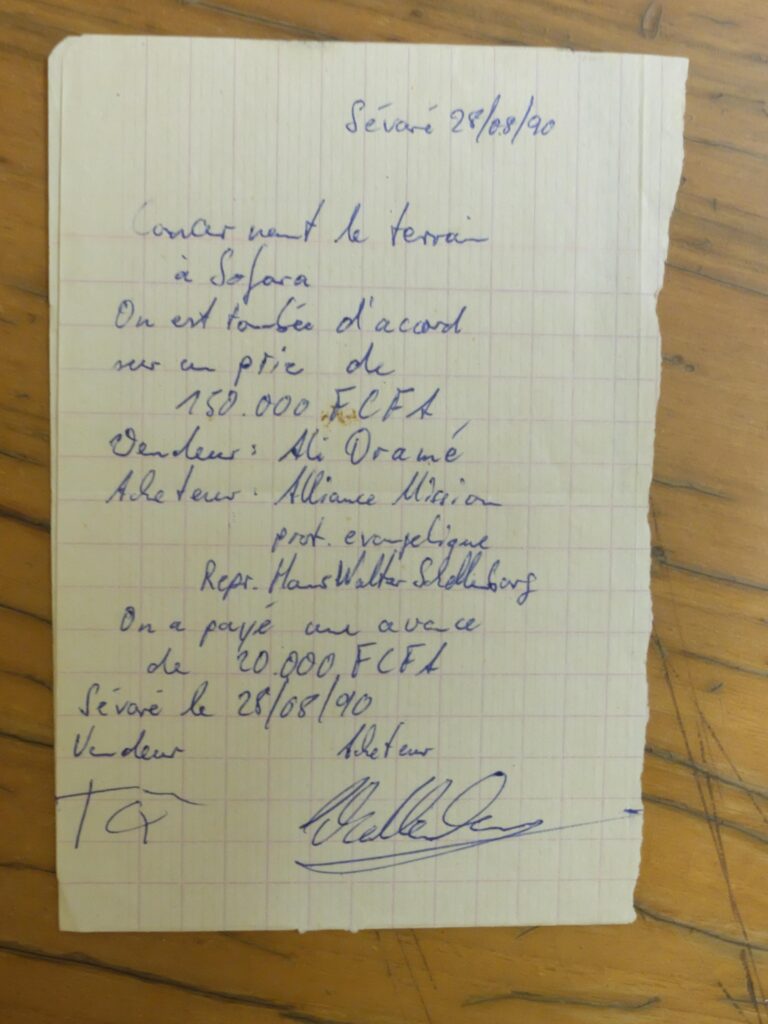 Sévaré 28/08/90
Concernant le terrain
à Sofara
On est tombée d'accord
sur un prie de
150.000 FCFA
Vendeur: Ali Dramé
Acheteur: Alliance Mission
prot. evangelique
Repr. Hans Walter
On a payé une avance
de 20.000 FCFA
Sévaré le 28/08/90
Vendeur Acheteur